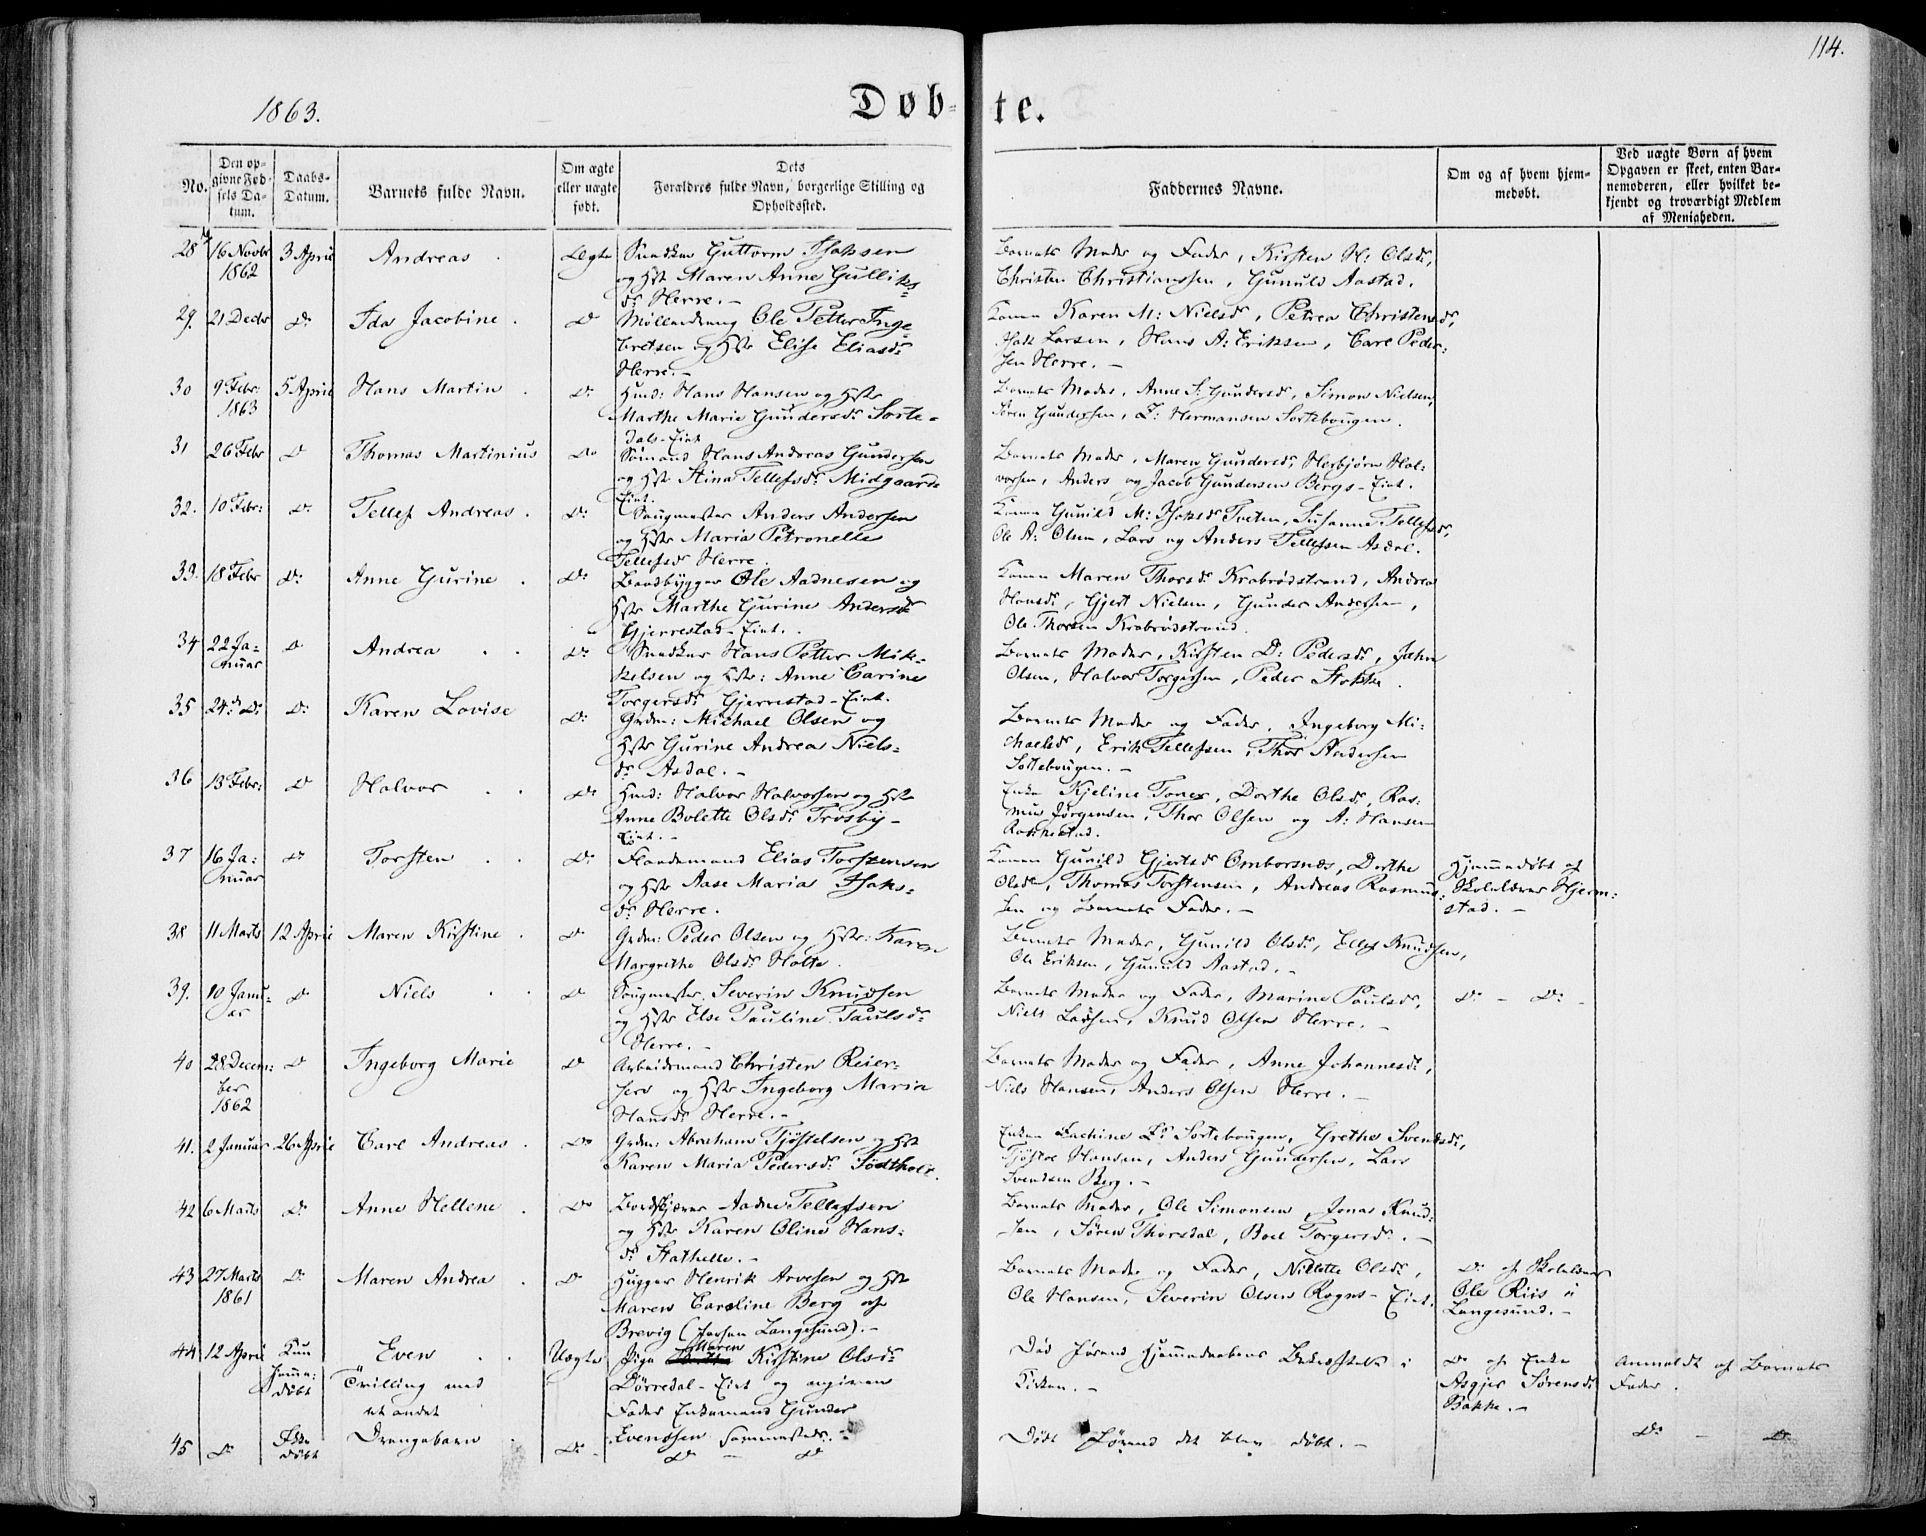 114.
1863.
Døb-
te.
No.
Den op-
givne Fød-
sels Da-
tum.
Daabs-
Datum.
Barnets fulde Navn.
Om ægte
eller uægte
født.
Dets
Forældres fulde Navn, borgerlige Stilling og
Opholdssted.
Faddernes Navne.
Om og af hvem hjem-
medøbt.
Ved uægte Børn af hvem
Opgaven er skeet, enten Bar-
nemoderen, eller hvilket be-
kjendt og troværdigt Medlem
af Menigheden.
28 16 Novbr 3 April Andreas Ægte Snedker Guttorm Isaksen
1862 og Hst Maren Anne Gulliks=
dr Herre.-
Barnets Moder og Fader, Kirsten H: Olsdr,
Christen Christianssen, Gunuld Aastad.
29. 21 Decbr Do Ida Jacobine Do Møllerdreng Ole Petter Inge
bretsen og Hst Elise Eliasdr
Herre.-
Konen Karen M: Nielsdr, Petrea Christensdr,
Isak Larsen, Hans A: Eriksen, Carl Peder-
sen Herre.-
30 9 Febr 5 April Hans Martin Do Husd: Hans Hansen og Hst
1863 Marthe Marie Gundersdr Sorte-
dals-Eiet
Barnets Moder, Anne S. Gundersdr, Simon Nielsen,
Søren Gundersen, Z: Hermansen Sortebougen.
31 26 Febr Do Thomas Martinius Do Sømand Hans Andreas Gundersen
og Hst Stina Tellefsdr Midgaards
Eiet.
Barnets Moder, Maren Gundersdr, Herbjørn Hal-
vorsen, Anders og Jacob Gundersen Bergs-Eiet.
32. 10 Febr: Do Tellef Andreas. Do: Saugmester Anders Andersen
og Hst Maria Petronelle
Tellefsdr Herre.
Konen Gunild M: Isaksdr Tveten, Susanne Tellefsdr,
Ole A: Olsen, Lars og Anders Tellefsen Asdal.
33. 18 Febr Do: Anne Gurine Do: Baadbygger Ole Aadnesen og
Hst Marthe Gurine Andersdr
Gjerrestad-Eiet.
Konen Maren Thorsdr Krabrødstrand, Andrea
Hansdr, Gjert Nielsen, Gunder Andersen,
Ole Thorsen Krabrødstrand.
34 22 Ja= Do Andrea Do: Snedker Hans Petter Mik-
nuar kelsen og Hst: Anne Carine
Torgersdr Gjerrestad-Eiet.
Barnets Moder, Kirsten D: Pedersdr, John
Olsen, Halvor Torgersen, Peder Stokke.
35 24: Do: Do: Karen Lovise Do: Grdm: Michael Olsen og
Hst Gurine Andrea Niels-
dr Asdal.-
Barnets Moder og Fader, Ingeborg Mi-
chaelsdr, Erik Tellefsen, Thor Andersen
Sortebougen.-
36 13 Febr: Do Halvor Do: Husd: Halvor Halvorsen og Hst
Anne Bolette Olsdr Trosby-
Eiet.-
Enke Kjeline Tonex, Dorthe Olsdr, Ras-
mus Jørgensen, Thor Olsen og A: Hansen
37 16 Ja= Do Torsten Do: Elias Torstensen
nuar og Hst Aase Maria Isaks-
dr Herre.
Konen Gunild Gjertsdr Omborsnæs, Dorthe
Olsdr, Thomas Torstensen, Andreas Rasmus-
sen og Barnets Fader.-
Hjemmedøbt af
Skolelærer Hjerm-
stad.-
38 11 Marts 12 April Maren Kirstine Do Grdm: Peder Olsen og Hst: Karen
Margrethe Olsdr Holte.
Barnets Moder, Gunild Olsdr, Ellef Knudsen,
Ole Eriksen, Gunuld Aastad.-
39. 10 Janu- Do Niels Do Saugmester Severin Knudsen
ar og Hst Else Pauline Paulsdr
Herre.-
Barnets Moder og Fader, Marine Paulsdr,
Niels Larsen, Knud Olsen Herre.-
Do: - Do:
40 28 Decem- Do Ingeborg Marie Do Arbeidsmand Christen Reier-
ber sen og Hst Ingeborg Maria
1862 Hansdr Herre.-
Barnets Moder og Fader, Anne Johannesdr,
Niels Hansen, Anders Olsen Herre.-
41. 2 Januar 26 April Carl Andreas. Do Grdm: Abraham Tjøstelsen og Hst
Karen Maria Pedersdr Fødthole.
Enken Zachine Sortebougen, Grethe Svendsdr,
Hansen, Anders Gundersen, Lars
Svendsen Berg.-
42 6 Marts Do: Anne Hellene Do Aadne Tellefsen
og Hst Karen Oline Hans-
dr Stathelle.-
Barnets Moder, Ole Simonsen, Jonas Knud-
sen, Søren Thorsdal, Boel Torgersdr.-
43 27 Marts Do: Maren Andrea Do Hugger Henrik Arvesen og Hst
1861 Maren Caroline Berg af
Brevig (forhen Langesund).-
Barnets Moder og Fader, Nillette Olsdr,
Ole Hansen, Severin Olsen Rogns-Eiet.
Do: af Skolelærer
Ole Riis i
Langesund.-
44 12 April Kun Even Uægte Pige Maren Kirstine Olsdr
hjemme- Tvilling med Dørredal-Eiet og angiven
døbt et andet Fader Enkemand Gunder
Evensen sammesteds.-
Død førend Hjemmedaabens Bekræftelse i
Kirken.-
Do af Enke
Asgjer Sørensdr
Bakke.-
Anmeldt af Barnets
Fader.
45 Do Ikke Drengebarn Do: Do - Do
døbt
Dødt førend det blev døbt.-
Do - Do